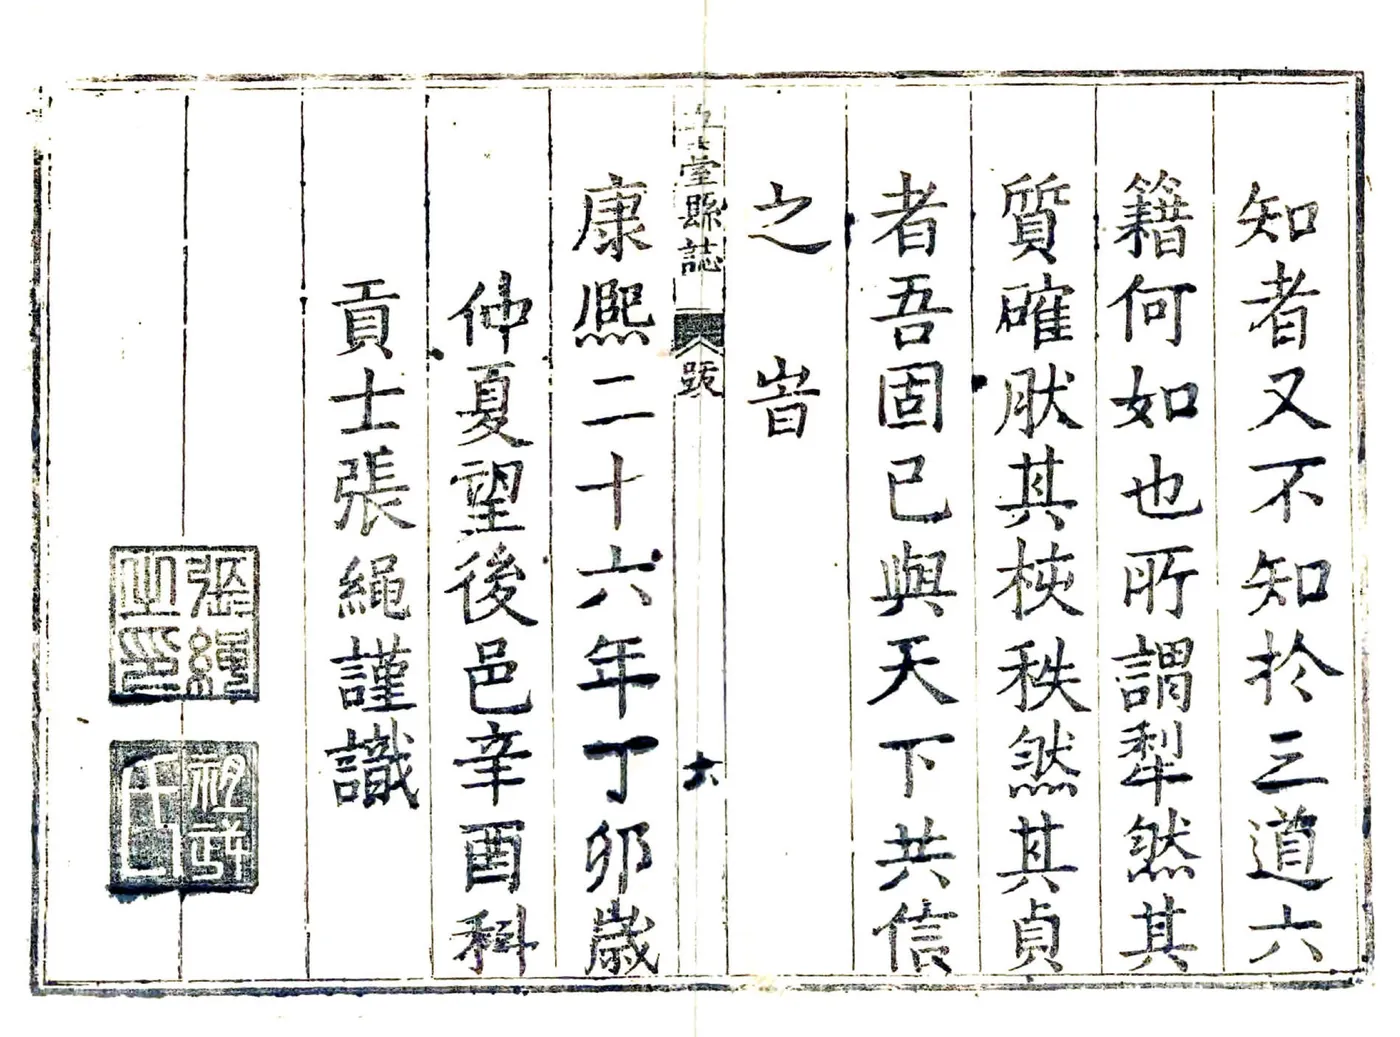 知者又不知於三道六
籍何如也所謂犁然其
質確肰其梜秩然其貞
者吾固已與天下共信
之峕
堂縣誌 跋 六
康熙二十六年丁卯歲
仲夏望後邑辛酉科
貢士張繩謹識
張繩之印